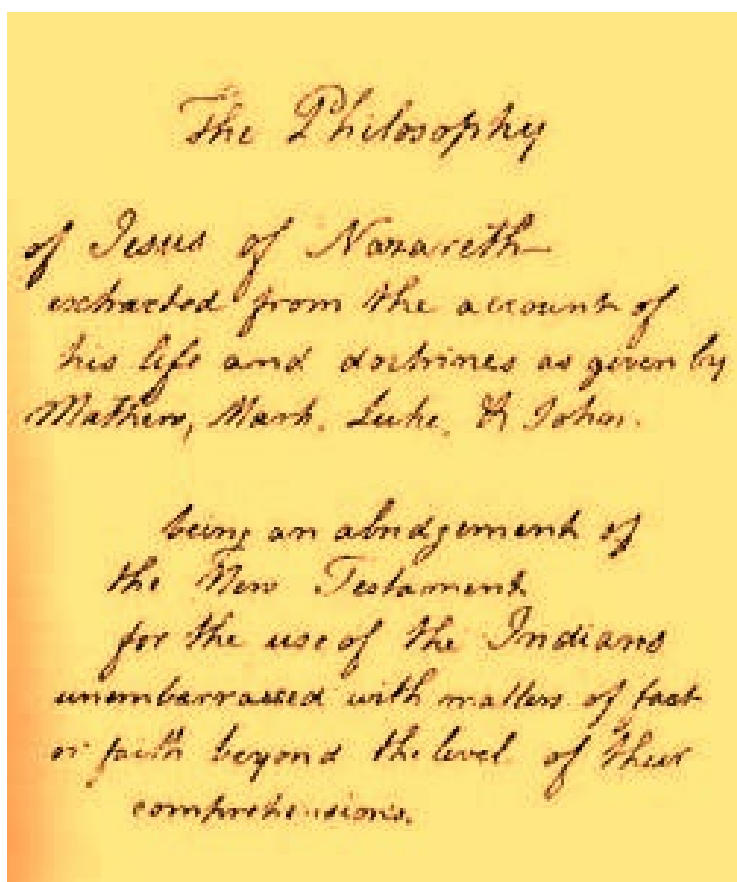 The Philosophy
of Jesus of Nazareth
extracted from the account of
his life and doctrines as given by
Mathew, Mark, Luke, & John.
being an abridgement of
the New Testament
for the use of the Indians
unembarrassed with matters of fact
or faith beyond the level of their
comprehensions.